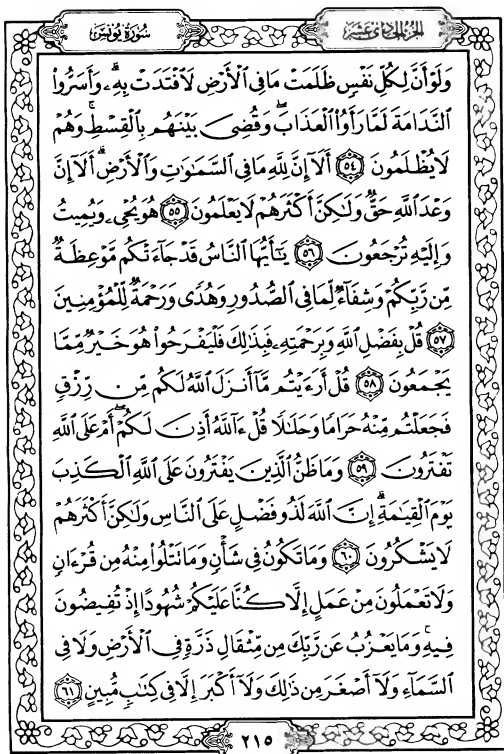 الجزء الحادي عشر
سورة يونس
وَلَوْ أَنَّ لِكُلِّ نَفْسٍ ظَلَمَتْ مَا فِي ٱلْأَرْضِ لَٱفْتَدَتْ بِهِۦۗ وَأَسَرُّوا۟
ٱلنَّدَامَةَ لَمَّا رَأَوُا۟ ٱلْعَذَابَۖ وَقُضِىَ بَيْنَهُم بِٱلْقِسْطِۚ وَهُمْ
لَا يُظْلَمُونَ ٥٤ أَلَآ إِنَّ لِلَّهِ مَا فِي ٱلسَّمَٰوَٰتِ وَٱلْأَرْضِۗ أَلَآ إِنَّ
وَعْدَ ٱللَّهِ حَقٌّ وَلَٰكِنَّ أَكْثَرَهُمْ لَا يَعْلَمُونَ ٥٥ هُوَ يُحْىِۦ وَيُمِيتُ
وَإِلَيْهِ تُرْجَعُونَ ٥٦ يَٰٓأَيُّهَا ٱلنَّاسُ قَدْ جَآءَتْكُم مَّوْعِظَةٌ
مِّن رَّبِّكُمْ وَشِفَآءٌ لِّمَا فِي ٱلصُّدُورِ وَهُدًى وَرَحْمَةٌ لِّلْمُؤْمِنِينَ
٥٧ قُلْ بِفَضْلِ ٱللَّهِ وَبِرَحْمَتِهِۦ فَبِذَٰلِكَ فَلْيَفْرَحُوا۟ هُوَ خَيْرٌ مِّمَّا
يَجْمَعُونَ ٥٨ قُلْ أَرَءَيْتُم مَّآ أَنزَلَ ٱللَّهُ لَكُم مِّن رِّزْقٍ
فَجَعَلْتُم مِّنْهُ حَرَامًا وَحَلَٰلًا قُلْ ءَآللَّهُ أَذِنَ لَكُمْۖ أَمْ عَلَى ٱللَّهِ
تَفْتَرُونَ ٥٩ وَمَا ظَنُّ ٱلَّذِينَ يَفْتَرُونَ عَلَى ٱللَّهِ ٱلْكَذِبَ
يَوْمَ ٱلْقِيَٰمَةِۗ إِنَّ ٱللَّهَ لَذُو فَضْلٍ عَلَى ٱلنَّاسِ وَلَٰكِنَّ أَكْثَرَهُمْ
لَا يَشْكُرُونَ ٦٠ وَمَا تَكُونُ فِي شَأْنٍ وَمَا تَتْلُوا۟ مِنْهُ مِن قُرْءَانٍ
وَلَا تَعْمَلُونَ مِنْ عَمَلٍ إِلَّا كُنَّا عَلَيْكُمْ شُهُودًا إِذْ تُفِيضُونَ
فِيهِۚ وَمَا يَعْزُبُ عَن رَّبِّكَ مِن مِّثْقَالِ ذَرَّةٍ فِي ٱلْأَرْضِ وَلَا فِي
ٱلسَّمَآءِ وَلَآ أَصْغَرَ مِن ذَٰلِكَ وَلَآ أَكْبَرَ إِلَّا فِي كِتَٰبٍ مُّبِينٍ ٦١
٢١٥